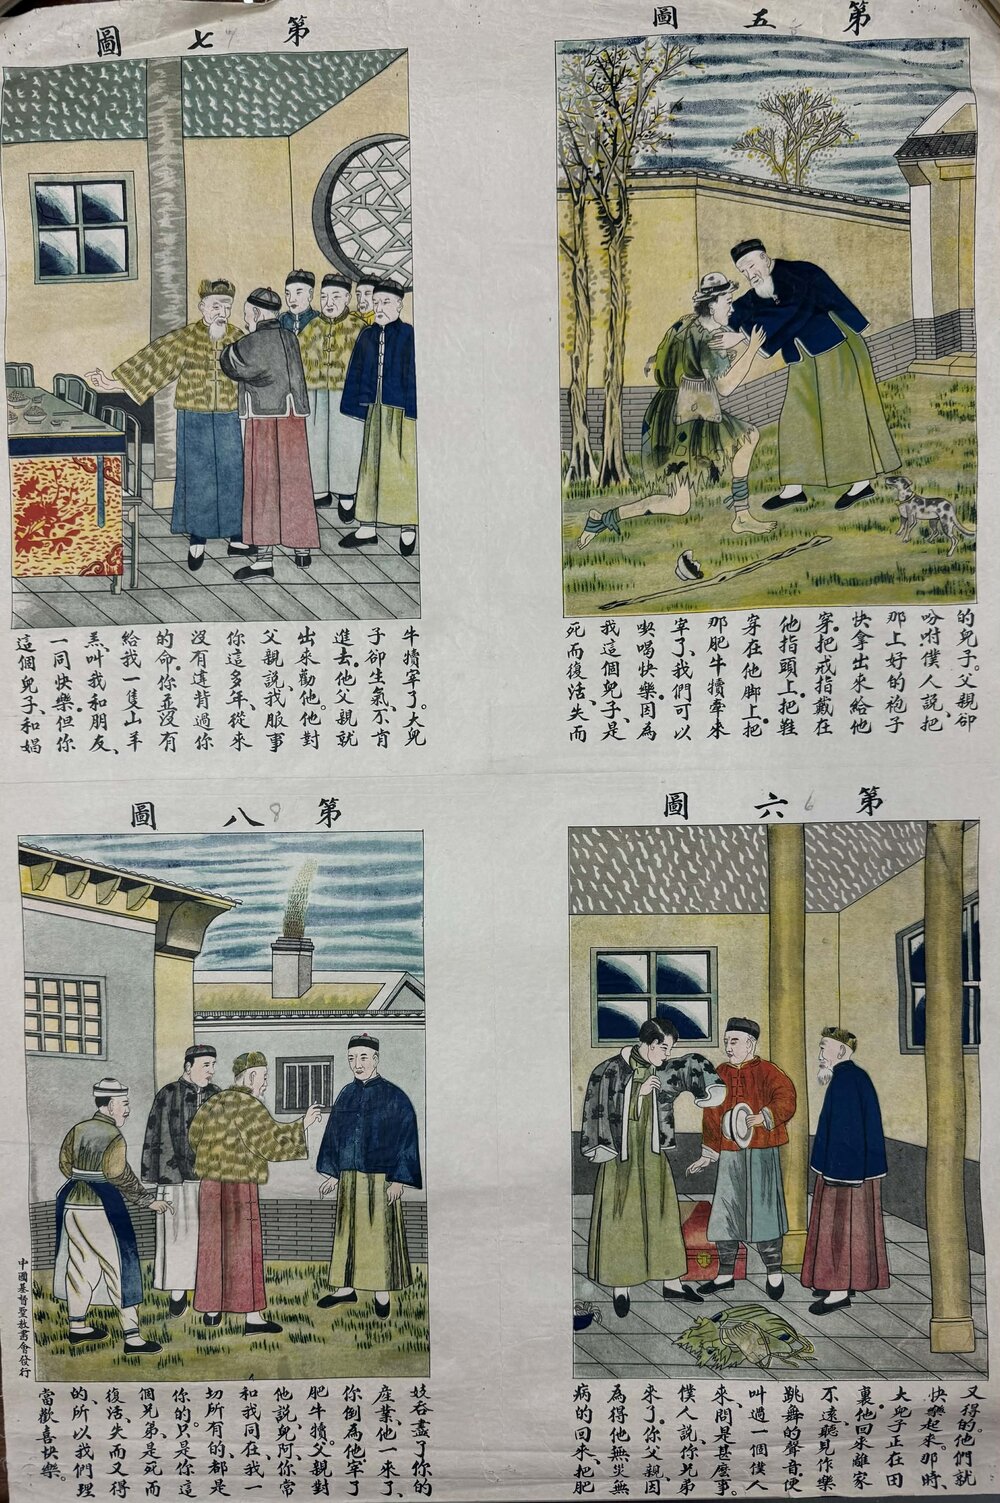 第五圖
的兒子。父親卻
吩咐僕人說、把
那上好的袍子
快拿出來給他
穿。把戒指戴在
他指頭上。把鞋
穿在他脚上。把
那肥牛犢牽來
宰了、我們可以
喫喝快樂。因為
我這個兒子、是
死而復活、失而
第六圖
6
又得的。他們就
快樂起來。那時、
大兒子正在田
裏。他回來離家
不遠、聽見作樂
跳舞的聲音。便
叫過一個僕人
來、問是甚麼事。
僕人說、你兄弟
來了。你父親、因
為得他無災無
病的回來、把肥
第七圖
7
牛犢宰了。大兒
子卻生氣、不肯
進去。他父親就
出來勸他。他對
父親說、我服事
你這多年、從來
沒有違背過你
的命。你並沒有
給我一隻山羊
羔、叫我和朋友、
一同快樂。但你
這個兒子、和娼
第八圖
8
妓吞盡了你的
產業、他一來了、
你倒為他宰了
肥牛犢。父親對
他說、兒阿、你常
和我同在、我一
切所有的、都是
你的。只是你這
個兄弟、是死而
復活、失而又得
的、所以我們理
當歡喜快樂。
中國基督聖教書會發行